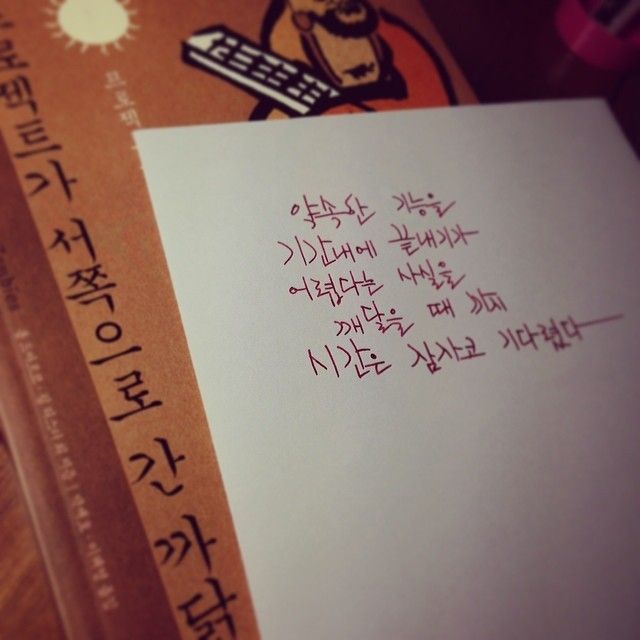 프로젝트가 서쪽으로 간 까닭
프로젝
약속한 기능을
기간내에 끝내기가
어렵다는 사실을
깨달을 때 까지
시간은 잠자코 기다렸다